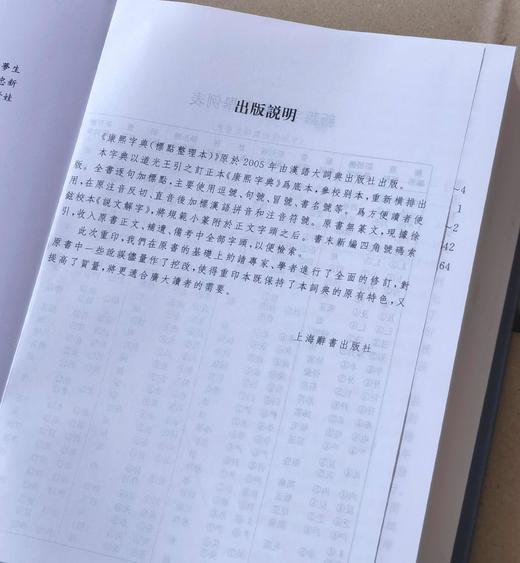 夢生
忠新
出版説明
《康熙字典(標點整理本)》原於2005年由漢語大詞典出版社出版。
本字典以道光王引之訂正本《康熙字典》爲底本,參校别本,重新横排出
版。全書逐句加標點,主要使用逗號、句號、冒號、書名號等。爲方便讀者使
用,在原注音反切、直音後加標漢語拼音和注音符號。原書無篆文,現據徐
鉉校本《説文解字》,將規範小篆附於正文字頭之後。書末新編四角號碼索
引,收入原書正文、補遺、備考中全部字頭,以便檢索。
此次重印,我們在原書的基礎上約請專家、學者進行了全面的修訂,對
原書中一些訛誤儘量作了挖改,使得重印本既保持了本詞典的原有特色,又
提高了質量,將更適合廣大讀者的需要。
上海辭書出版社
~4
1
~2
42
64